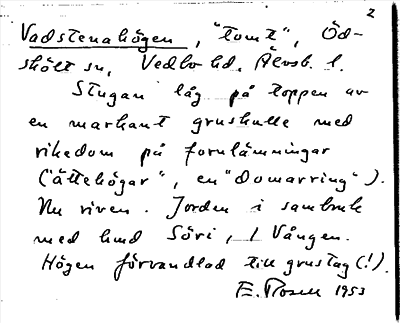 2
Vadstenahögen, "tomt", Öd-
skölt sn, Vedbo hd. Älvsb. l.
Stugan låg på toppen av
en markant gruskulle med
rikedom på fornlämningar
("ättehögar", en "domarring").
Nu riven. Jorden i sambruk
med hmd Söri, / Vången.
Högen förvandlad till grustag (!).
E. Rosell 1953